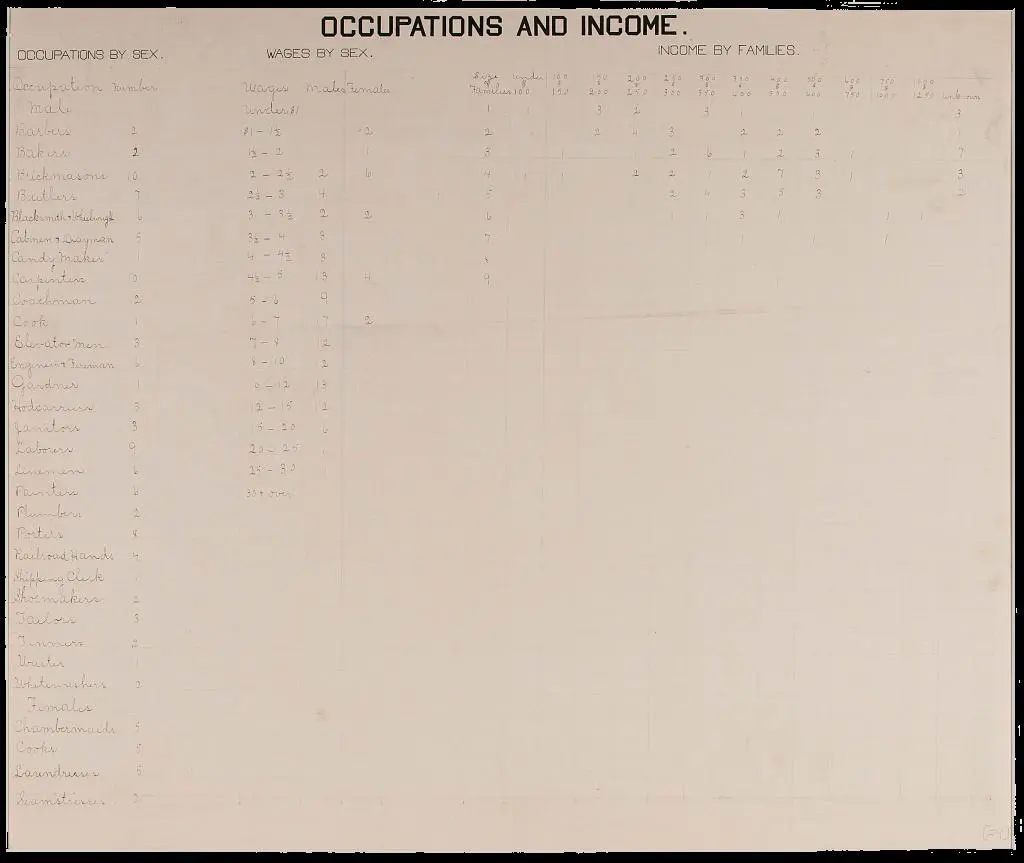 OCCUPATIONS AND INCOME.
OCCUPATIONS BY SEX.
Occupation Number
Male
Barbers 2
Bakers 2
Brickmasons 10
Butlers 7
Blacksmith + 6
Cabmen + Drayman 5
Candy Maker 1
Carpenters
Coachman 2
Cook 1
Elevator men 3
Engineer + Fireman 6
Gardner 1
Hodcarriers 3
Janitors 3
Laborers 9
Linemen 6
Painters 6
Plumbers 2
Porters 8
Railroad Hands 4
Shipping Clerk 1
Shoemakers 2
Tailors 3
Tinners 2
Waiter 1
Whitewashers 2
Females
Chambermaids 5
Cooks 5
Laundresses 5
Seamstresses 2
WAGES BY SEX.
Wages Males Females
Under $1
$1 – 1½ 2
1½ – 2 1
2 – 2½ 2 6
2½ – 3 4
3 – 3½ 2 2
3½ – 4 8
4 – 4½ 8
4½ – 5 13 4
5 – 6 9
6 – 7 7 2
7 – 8 12
8 – 10 2
– 12 13
12 – 15 12
15 – 20 6
20 – 25 1
25 – 30
30 + over
INCOME BY FAMILIES.
Size Under 100 150 200 250 300 350 400 500 600 750
Families 100 150 200 250 300 350 400 500 600 750 1000 1250 Unknown
1 1 3 2 3 1 1 3
2 2 4 3 2 2 2 1
3 1 1 2 6 1 2 3 1 7
4 1 1 2 2 1 2 7 3 1 3
5 2 4 3 5 3 2
6 1 1 3 1 1 1
7 1 1 1 1 1
8
9